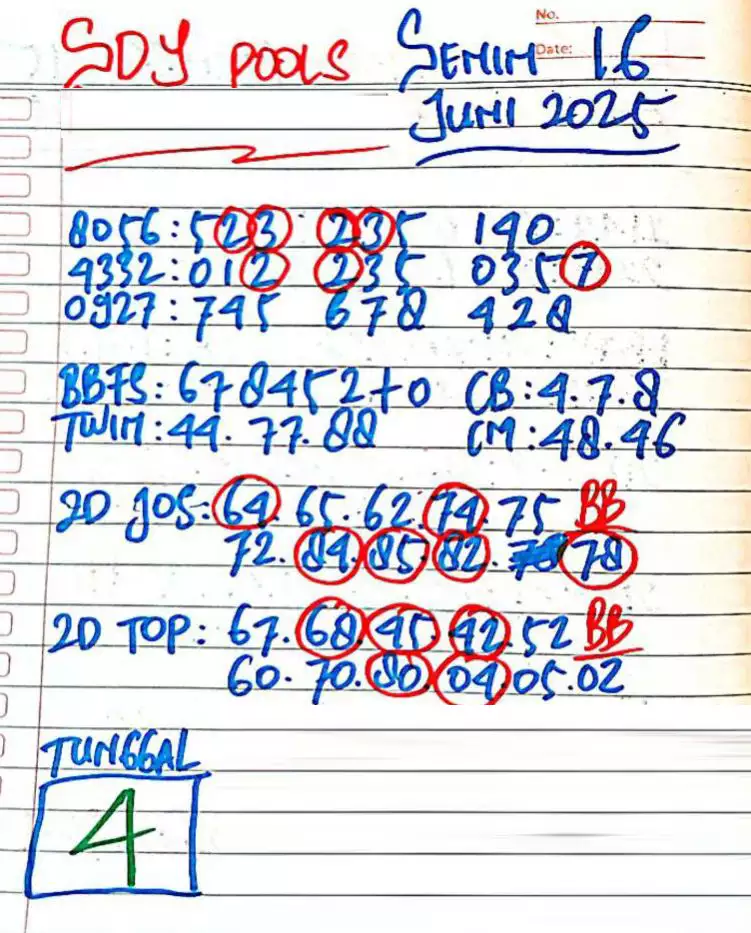 No.
SDY POOLS SENIN Date: 16
JUNI 2025
8056:523 235 140
4332:012 235 0357
0927:745 678 428
BBFS:678452+0 CB:4.7.8
TWIN:44.77.88 CM:48.46
2D JOS:64.65.62.74.75 BB
72.84.85.82. 78
2D TOP: 67.68.45.42.52 BB
60.70.80.04.05.02
TUNGGAL
4